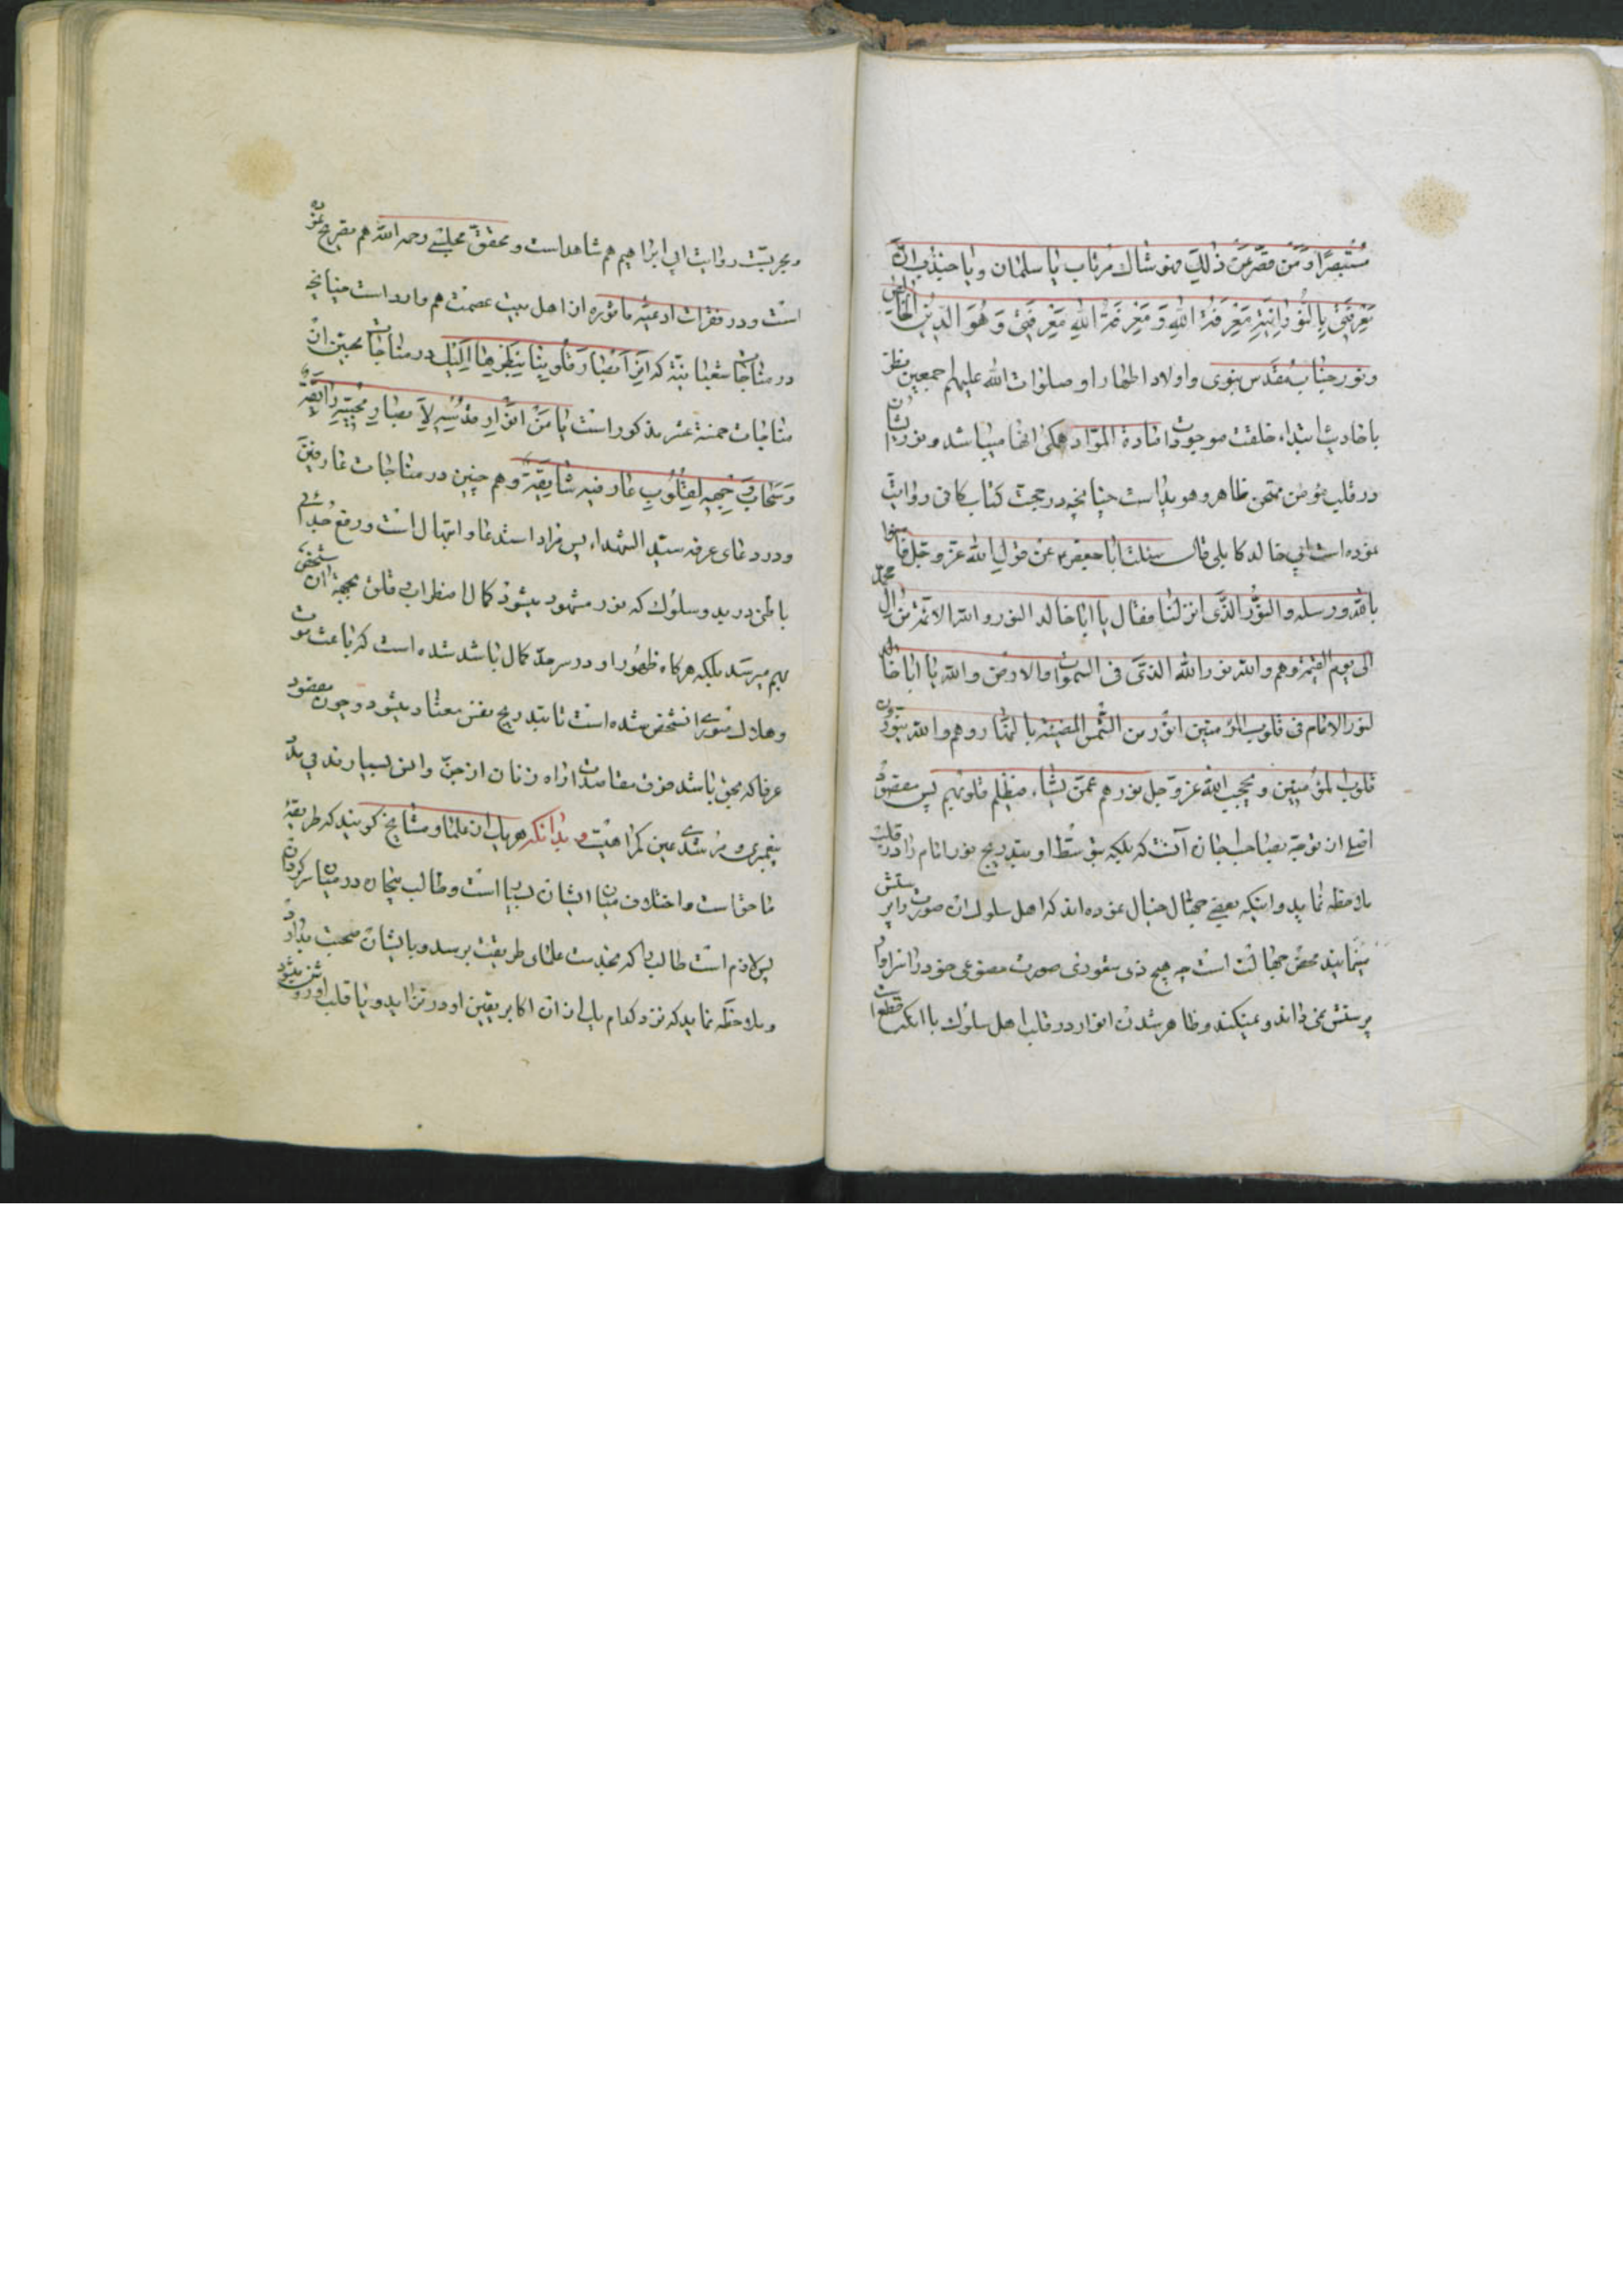 مُسْتَبصِرًا وَمَن قَصَّرَ عَن ذٰلِكَ فهو شاك مرتاب یا سلمان ویا جندب انّ
مَعْرِفَتی بِالنُّورانِیَّةِ مَعْرِفَةُ اللهِ وَ مَعْرِفَةُ اللهِ مَعْرِفَتی وَ هُوَ الدّینُ الخالِص
ونور جناب مُقدّس نبوی و اولاد اطهار او صلوات الله علیهم اجمعین نظر
باحادیث ابتداء خلقت موجودات مادة الموادّ همگی انها میباشد و نور ایشان
در قلب مؤمن ممتحن ظاهر و هویداست چنانچه در حجت کتاب کافی روایت
نموده است ابی خالد کابلی قال سئلت ابا جعفر ع عن قول الله عزّ وجلّ فامنوا
بالله ورسله والنّور الّذی انزلنا فقال یا ابا خالد النور والله الائمّة من ال محمّد
الی یوم القیمة وهم والله نور الله الذی فی السموات والارض والله یا ابا خالد
لنور الامام فی قلوب المؤمنین انوَر من الشّمس المضیئة بالنّهار وهم والله ینوّرون
قلوب المؤمنین ویحجب الله عزّ وجل نورهم عمّن یشاء فتظلم قلوبهم پس مقصود
اصلی از توجّه بصاحب‌لجان آنست که بلکه بتوسّط او بتدریج نور امام را در قلب
ملاحظه نماید و اینکه بعضی جهّال خیال نموده‌اند که اهل سلوک ان صورت را پرستش
مینمایند محض جهالت است چه هیچ ذی شعوری صورت مصنوعی خود را سزاوار
پرستش نمی‌داند و نمیکند و ظاهر شدن انوار در قلب اهل سلوک با انکه قطعا
وتجربیّت روایت ابی ابراهیم هم شاهد است و محقق مجلسی رحمه الله هم تصریح نموده
است و در فقرات ادعیّه ماثوره از اهل بیت عصمت هم وارد است چنانچه
در مناجات شعبانیّه که اَنِر اَبْصارَ قُلُوبِنا بِضِیاءِ نَظَرِها اِلَیْکَ در مناجات محبین از
مناجات خمسة عشر مذکور است یا مَنْ اَنْوارُ قُدْسِهِ لِاَبصارِ مُحِبّیهِ رائِقَة
وَسُبُحاتُ وَجْهِهِ لِقُلُوبِ عارفیه شائِقَة و هم چنین در مناجات عارفین
و در دعای عرفه سیّد الشهداء پس مراد استدعا و ابتهال است و رفع جدائی
باطن در ید و سلوک که نور مشهود میشود کمال اضطراب و قلق بجهة ان شخص
بهم میرسد بلکه هرگاه ظهور او در سرحدّ کمال باشد شده است که باعث موت
وهلاک صوری انشخص شده است تا بتدریج نفس معتاد میشود و چون مقصود
عرفا که محق باشد صرف مقاصدات از راه زنان از جنّ و انس بسیارند بی مدد
پیغمبری و مرشدی عین گمراهیست و بدانکه هر یک از علما و مشایخ گویند که طریقهٔ
ما حق است و اختلاف میان ایشان بسیار است و طالب بیچاره در میان سرگردان
پس لازم است طالب را که بخدمت علمای طریقت برسد و با ایشان صحبت بدارد
و ملاحظه نماید که نزد کدام یک از ان اکابر یقین او در تزاید و یا قلب او روشن میشود